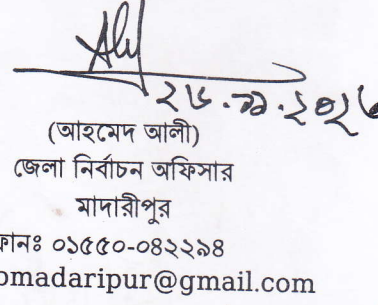 (আহমেদ আলী)
জেলা নির্বাচন অফিসার
মাদারীপুর
ফোনঃ ০১৫৫০-০৪২২৯৪
omadaripur@gmail.com